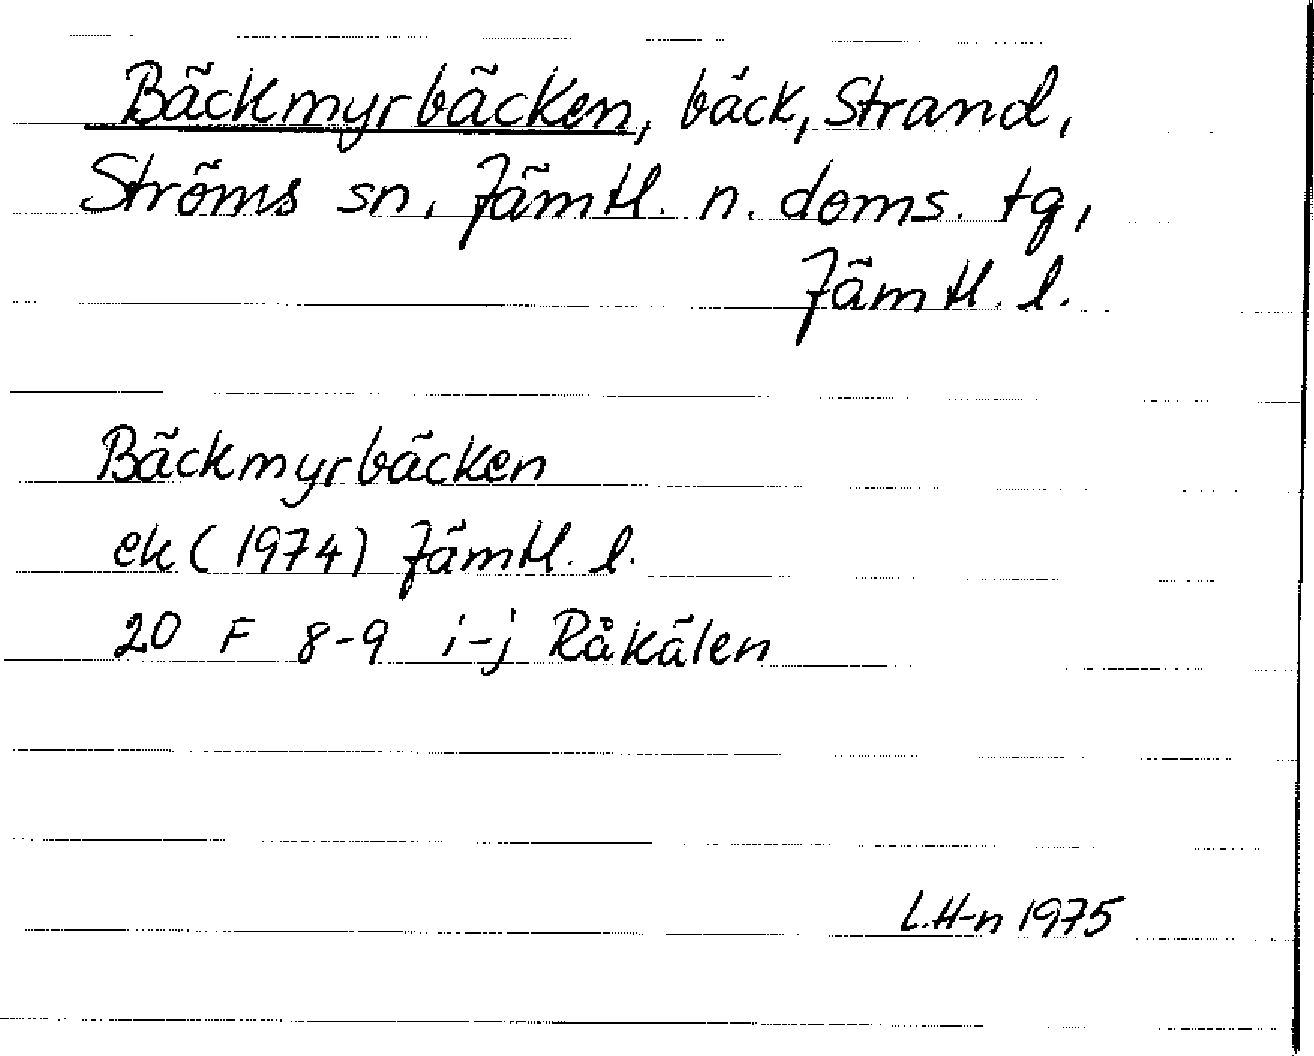 Bäckmyrbäcken, bäck, Strand,
Ströms sn, Jämtl. n. doms. tg,
Jämtl. l.
Bäckmyrbäcken
ek (1974) Jämtl. l.
20 F 8-9 i-j Råkälen
L.H-n 1975